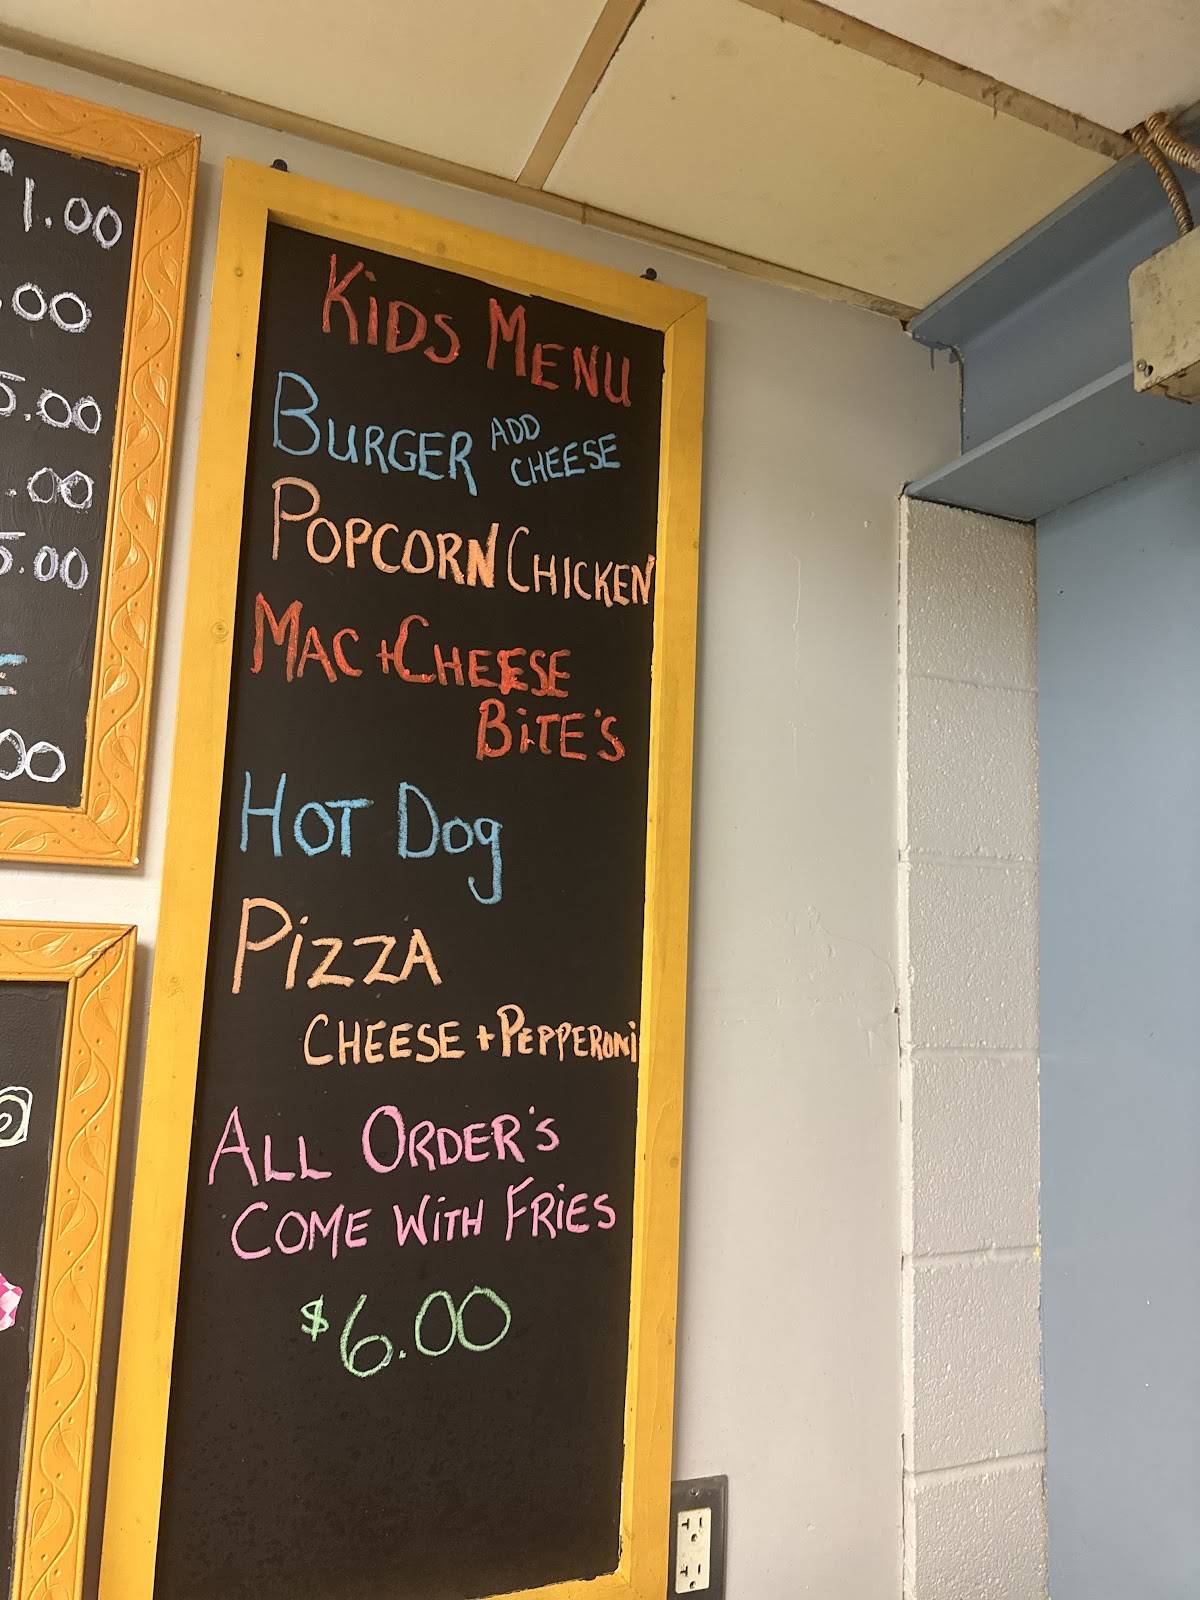 $1.00
.00
5.00
.00
5.00
00
KiDS MENU
BURGER ADD CHEESE
POPCORN CHICKEN
MAC + CHEESE
BiTE'S
HOT Dog
PiZZA
CHEESE + PEPPERONi
ALL ORDER'S
COME WiTH FRiES
$6.00